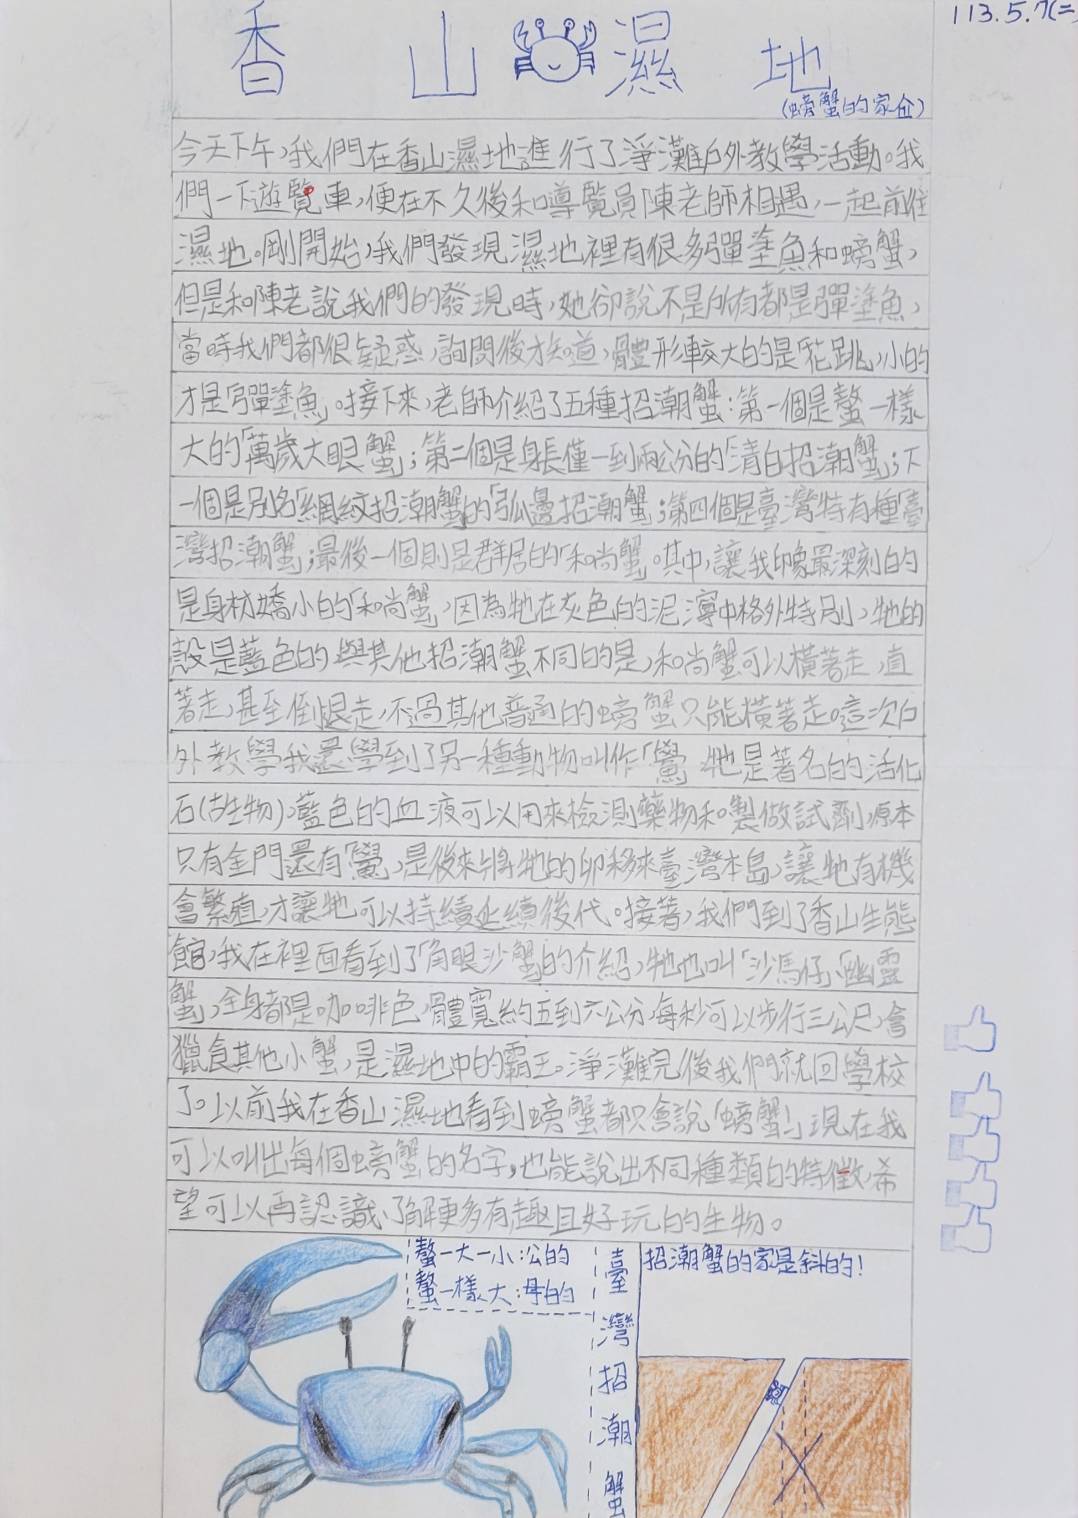 113.5.7(二)
香山濕地
(螃蟹的家企)
今天下午,我們在香山濕地進行了淨灘戶外教學活動。我
們一下遊覽車,便在不久後和導覽員陳老師相遇,一起前往
濕地。剛開始,我們發現濕地裡有很多彈塗魚和螃蟹,
但是和陳老說我們的發現時,她卻說不是所有都是彈塗魚,
當時我們都很疑惑,詢問後才知道,體形較大的是「花跳」,小的
才是「彈塗魚」。接下來,老師介紹了五種招潮蟹:第一個是螯一樣
大的「萬歲大眼蟹」;第二個是身長僅一到兩公分的「清白招潮蟹」;下
一個是別名「網紋招潮蟹」的「弧邊招潮蟹」;第四個是臺灣特有種「臺
灣招潮蟹」;最後一個則是群居的「和尚蟹」。其中,讓我印象最深刻的
是身材嬌小的「和尚蟹」,因為牠在灰色的泥濘中格外特別,牠的
殼是藍色的,與其他招潮蟹不同的是,和尚蟹可以橫著走,直
著走,甚至倒退走,不過其他普通的螃蟹只能橫著走。這次戶
外教學我還學到了另一種動物叫作「鱟」,牠是著名的活化
石(古生物),藍色的血液可以用來檢測藥物和製做試劑,原本
只有金門還有「鱟」,是後來將牠的卵移來臺灣本島,讓牠有機
會繁殖,才讓牠可以持續延續後代。接著,我們到了香山生態
館,我在裡面看到了「角眼沙蟹」的介紹,牠也叫「沙馬仔」、「幽靈
蟹」,全身都是咖啡色,體寬約五到六公分,每秒可以步行三公尺,會
獵食其他小蟹,是濕地中的霸王。淨灘完後我們就回學校
了。以前我在香山濕地看到螃蟹都只會說「螃蟹!」現在我
可以叫出每個螃蟹的名字,也能說出不同種類的特徵,希
望可以再認識、了解更多有趣且好玩的生物。
螯一大一小:公的
螯一樣大:母的
臺灣招潮蟹
招潮蟹的家是斜的!